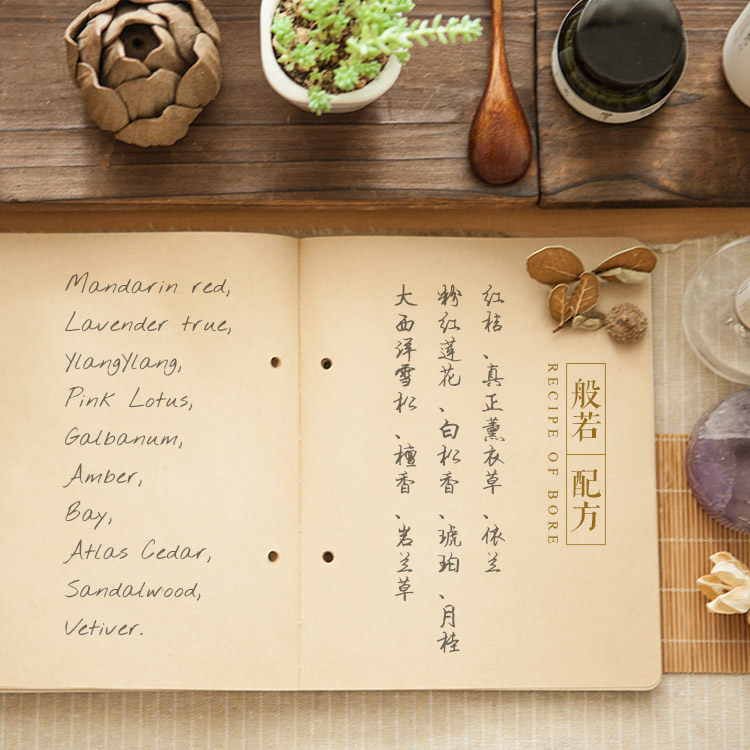 Mandarin red,
Lavender true,
YlangYlang,
Pink Lotus,
Galbanum,
Amber,
Bay,
Atlas Cedar,
Sandalwood,
Vetiver.
般若配方
RECIPE OF BORE
红桔、真正薰衣草、依兰
粉红莲花、白松香、琥珀、月桂
大西洋雪松、檀香、岩兰草